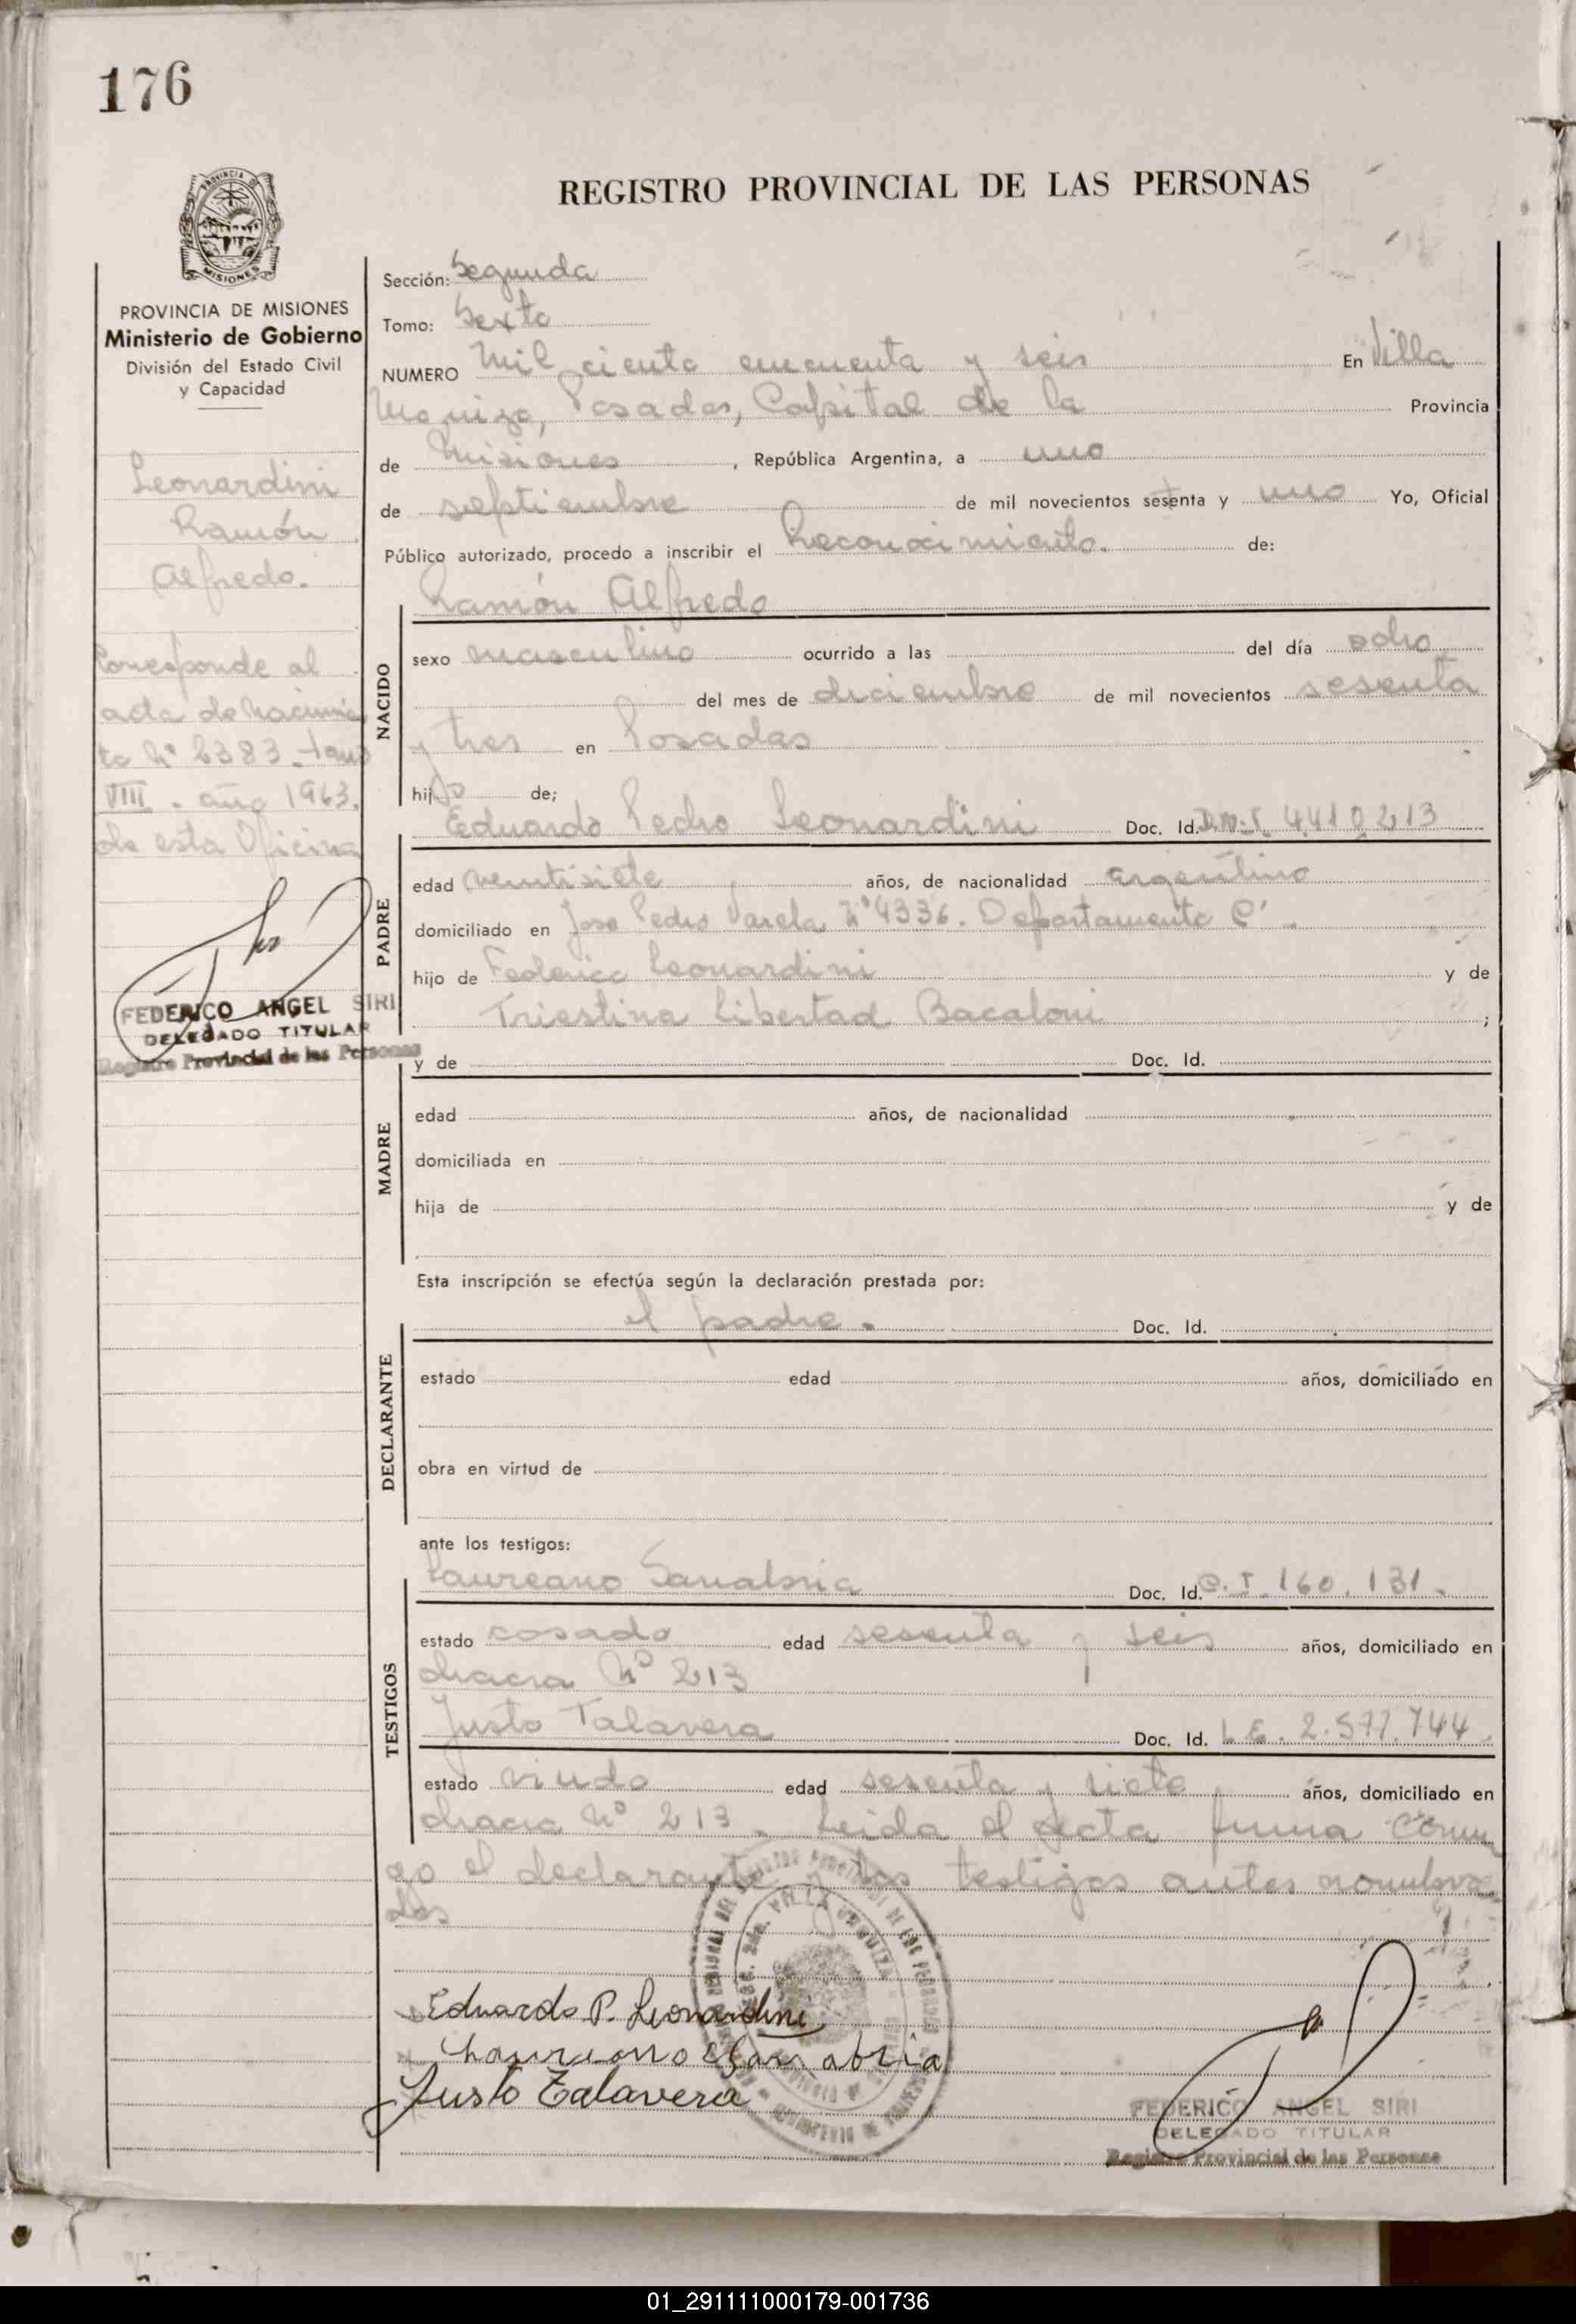 176
PROVINCIA DE
MISIONES
REGISTRO PROVINCIAL DE LAS PERSONAS
PROVINCIA DE MISIONES
Ministerio de Gobierno
División del Estado Civil
y Capacidad
Leonardini
Ramón
Alfredo.
Corresponde al
acta de nacimien
to Nº 2383 - tomo
VIII - año 1963.
de esta Oficina
FEDERICO ANGEL SIRI
DELEGADO TITULAR
Registro Provincial de las Personas
Sección: Segunda
Tomo: Sexto
NUMERO Mil ciento cincuenta y seis En Villa
Urquiza, Posadas, Capital de la Provincia
de Misiones, República Argentina, a uno
de septiembre de mil novecientos sesenta y uno Yo, Oficial
Público autorizado, procedo a inscribir el Reconocimiento. de:
Ramón Alfredo
NACIDO
sexo masculino ocurrido a las del día ocho
del mes de diciembre de mil novecientos sesenta
y tres en Posadas
hijo de;
Eduardo Pedro Leonardini Doc. Id. D.N.I. 4410213
PADRE
edad veintisiete años, de nacionalidad argentino
domiciliado en Jose Pedro Varela Nº 4336. Departamento C'
hijo de Federico Leonardini y de
Triestina Libertad Bacaloni ;
y de Doc. Id.
MADRE
edad años, de nacionalidad
domiciliada en
hija de y de
Esta inscripción se efectúa según la declaración prestada por:
el padre. Doc. Id.
DECLARANTE
estado edad años, domiciliado en
obra en virtud de
ante los testigos:
Laureano Sanabria Doc. Id. C.I. 160.131.
TESTIGOS
estado casado edad sesenta y seis años, domiciliado en
chacra Nº 213
Justo Talavera Doc. Id. L.E. 2.577.744.
estado viudo edad sesenta y siete años, domiciliado en
chacra Nº 213. Leida el acta firma conmi
go el declarante y los testigos antes nombra
dos
Eduardo P. Leonardini
Laureano Sanabria
Justo Talavera
FEDERICO ANGEL SIRI
DELEGADO TITULAR
Registro Provincial de las Personas
01_291111000179-001736